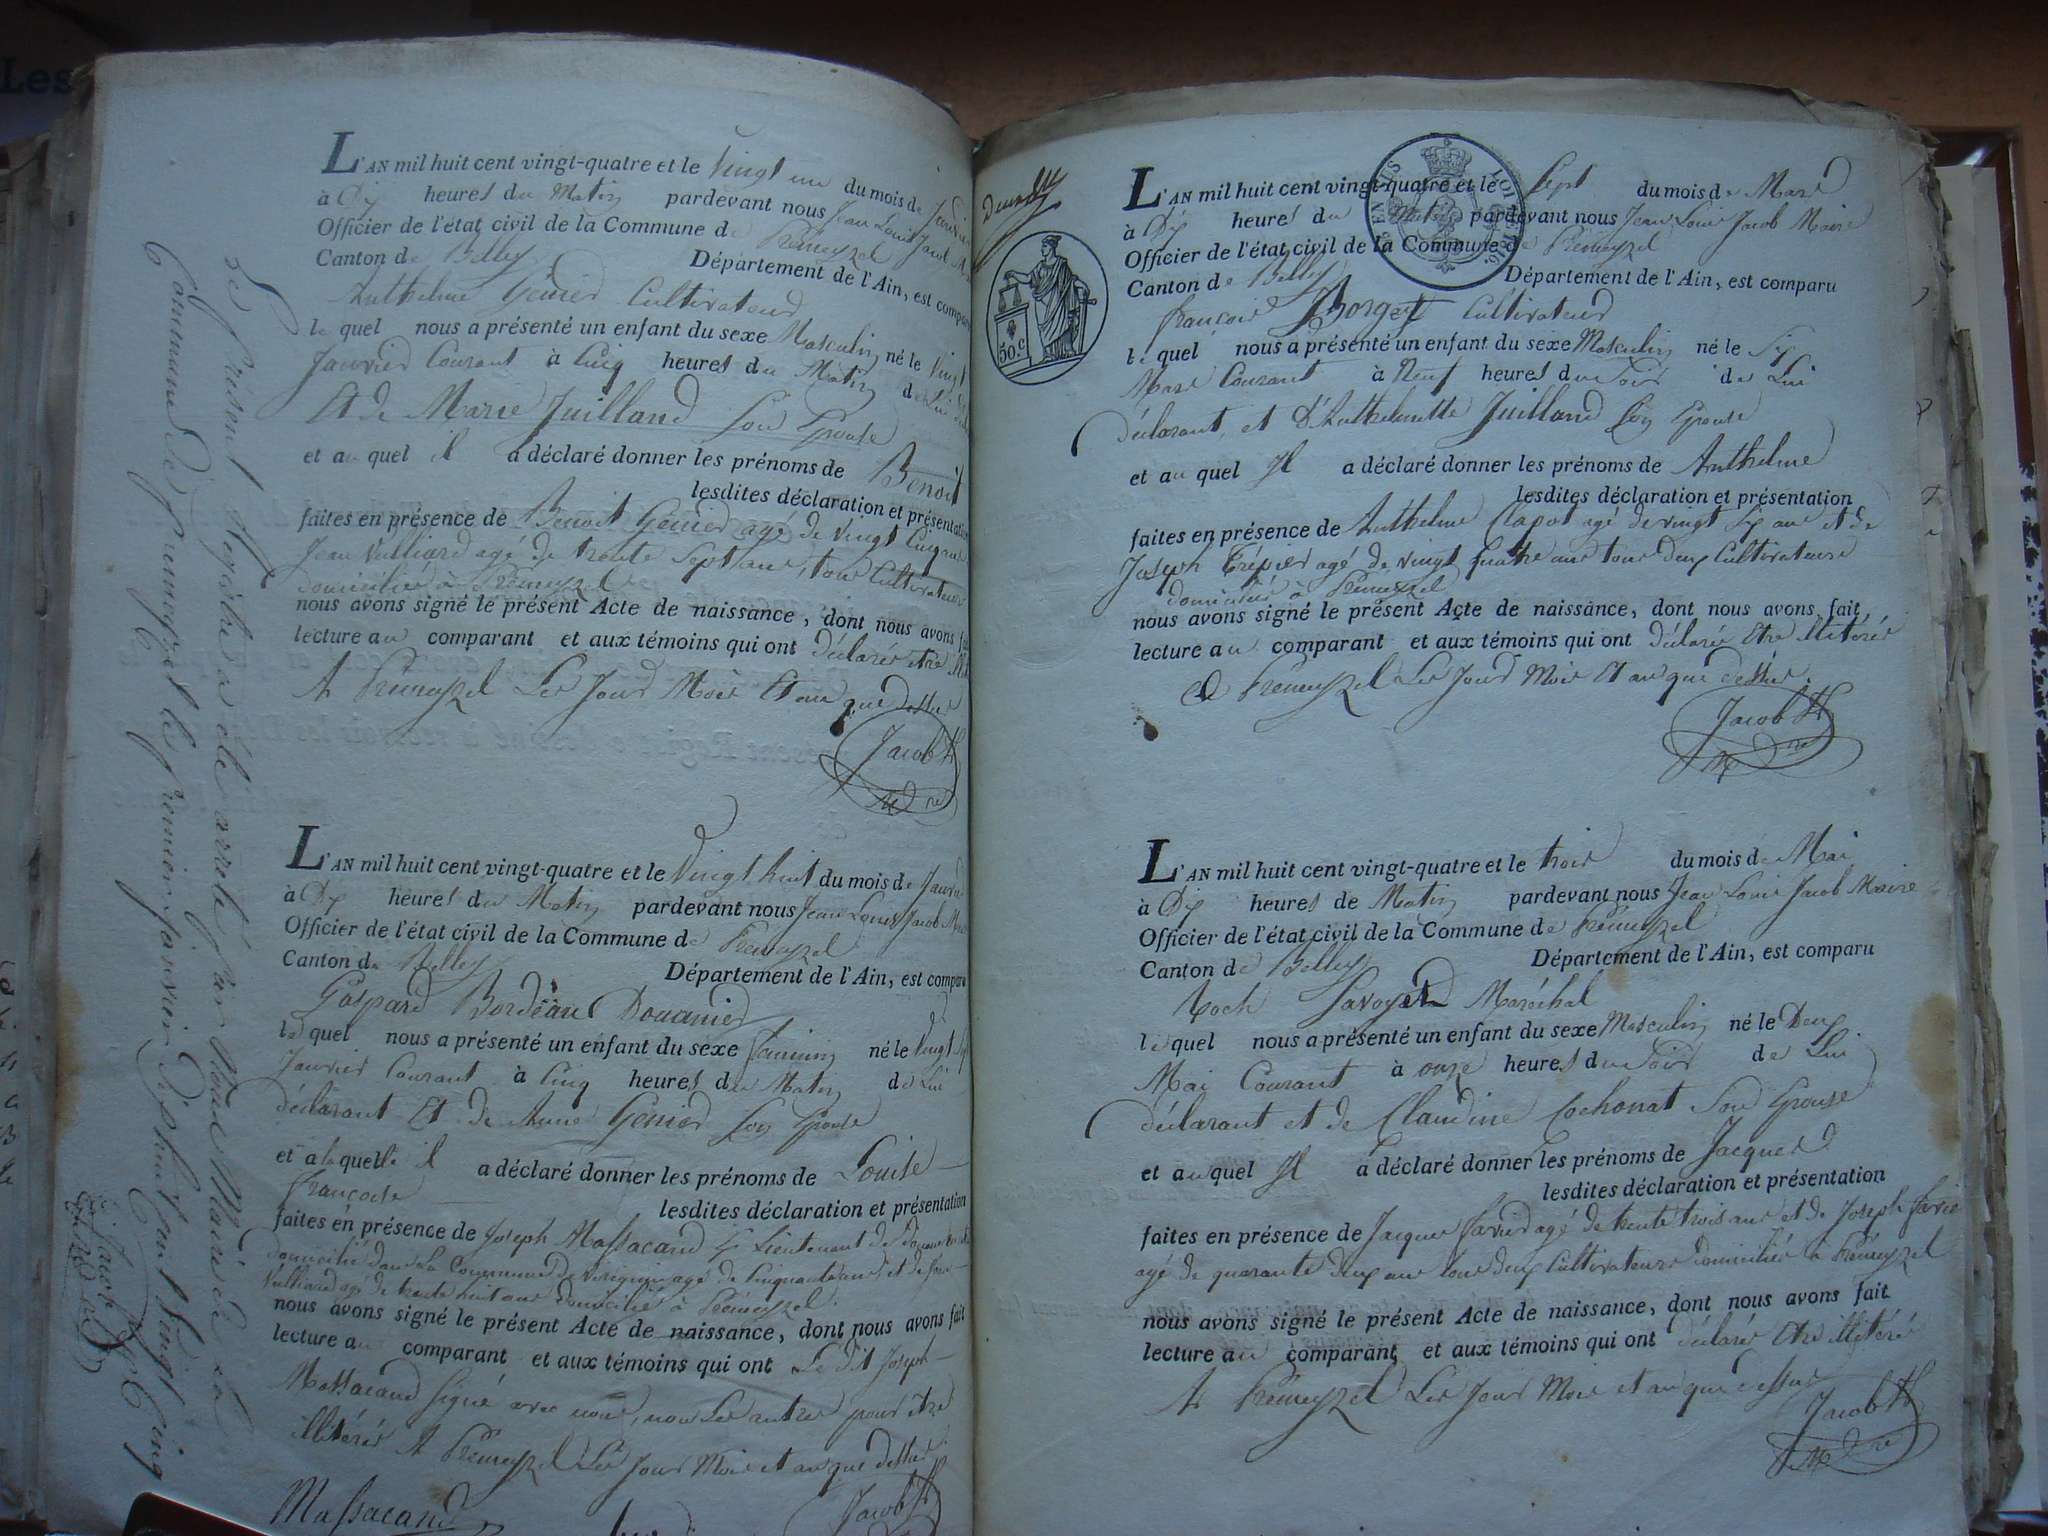 Les
L'AN mil huit cent vingt-quatre et le Vingt un du mois de Janvier
à Dix heures du Matin pardevant nous Jean Louis Jacob
Officier de l'état civil de la Commune de Prémeyzel
Canton de Belley Département de l'Ain, est comparu
Anthelme Génier Cultivateur
le quel nous a présenté un enfant du sexe Masculin né le Vingt
Janvier Courant à Cinq heures du Matin de
Et de Marie Juilland Son Epouse
et au quel il a déclaré donner les prénoms de Benoit
lesdites déclaration et présentation
faites en présence de Benoit Génier agé de Vingt Cinq ans
Jean Vulliard agé de trente Sept ans, tous Cultivateurs
domiciliés à Prémeyzel
nous avons signé le présent Acte de naissance, dont nous avons fait
lecture au comparant et aux témoins qui ont déclarés être
A Prémeyzel Les Jour Mois Et an que dessus
Jacob
L'AN mil huit cent vingt-quatre et le Vingt huit du mois de Janvier
à Dix heures du Matin pardevant nous Jean Louis Jacob
Officier de l'état civil de la Commune de Prémeyzel
Canton de Belley Département de l'Ain, est comparu
Gaspard Bordeau Douanier
le quel nous a présenté un enfant du sexe né le vingt
Janvier Courant à Cinq heures du Matin de Lui
déclarant Et de Anne Génier Son Epouse
et a laquelle il a déclaré donner les prénoms de Louise
françoise lesdites déclaration et présentation
faites en présence de Joseph Massacand Lieutenant de Douane
domicilié dans La Commune de agé de Cinquante ans et de
Vulliard agé de trente huit ans domicilié à Prémeyzel.
nous avons signé le présent Acte de naissance, dont nous avons fait
lecture au comparant et aux témoins qui ont Le dit Joseph
Massacand Signé avec nous, non Les autres pour être
illitérés A Prémeyzel Les Jour Mois et an que dessus
Massacand Jacob
Le Présent Registre a été arrêté par Nous Maire de la
Commune de Premeyzel le premier Janvier Dix huit Cent Vingt Cinq
Jacob
50 c.
L'AN mil huit cent vingt-quatre et le Sept du mois de Mars
à Dix heures du Matin pardevant nous Jean Louis Jacob Maire
Officier de l'état civil de la Commune de Prémeyzel
Canton de Belley Département de l'Ain, est comparu
françois Borget Cultivateur
le quel nous a présenté un enfant du sexe Masculin né le Six
Mars Courant à Neuf heures du Soir de Lui
déclarant, et d'Anthelmette Juilland Son Epouse
et au quel Il a déclaré donner les prénoms de Anthelme
lesdites déclaration et présentation
faites en présence de Anthelme Clapot agé de vingt Six ans et de
Joseph Trépier agé de vingt quatre ans tous deux Cultivateurs
domiciliés à Prémeyzel
nous avons signé le présent Acte de naissance, dont nous avons fait
lecture au comparant et aux témoins qui ont déclarés Etre illitérés
A Prémeyzel Les Jour Mois Et an que dessus.
Jacob
L'AN mil huit cent vingt-quatre et le trois du mois de Mai
à Dix heures de Matin pardevant nous Jean Louis Jacob Maire
Officier de l'état civil de la Commune de Prémeyzel
Canton de Belley Département de l'Ain, est comparu
Roch Savoyard Maréchal
le quel nous a présenté un enfant du sexe Masculin né le Deux
Mai Courant à onze heures du Soir de Lui
déclarant et de Claudine Cochonat Son Epouse
et au quel Il a déclaré donner les prénoms de Jacques
lesdites déclaration et présentation
faites en présence de Jacques agé de trente trois ans et de Joseph
agé de quarante deux ans tous deux Cultivateurs domiciliés à Prémeyzel
nous avons signé le présent Acte de naissance, dont nous avons fait
lecture au comparant et aux témoins qui ont déclaré Etre illitérés
A Prémeyzel Les Jour Mois et an que dessus
Jacob